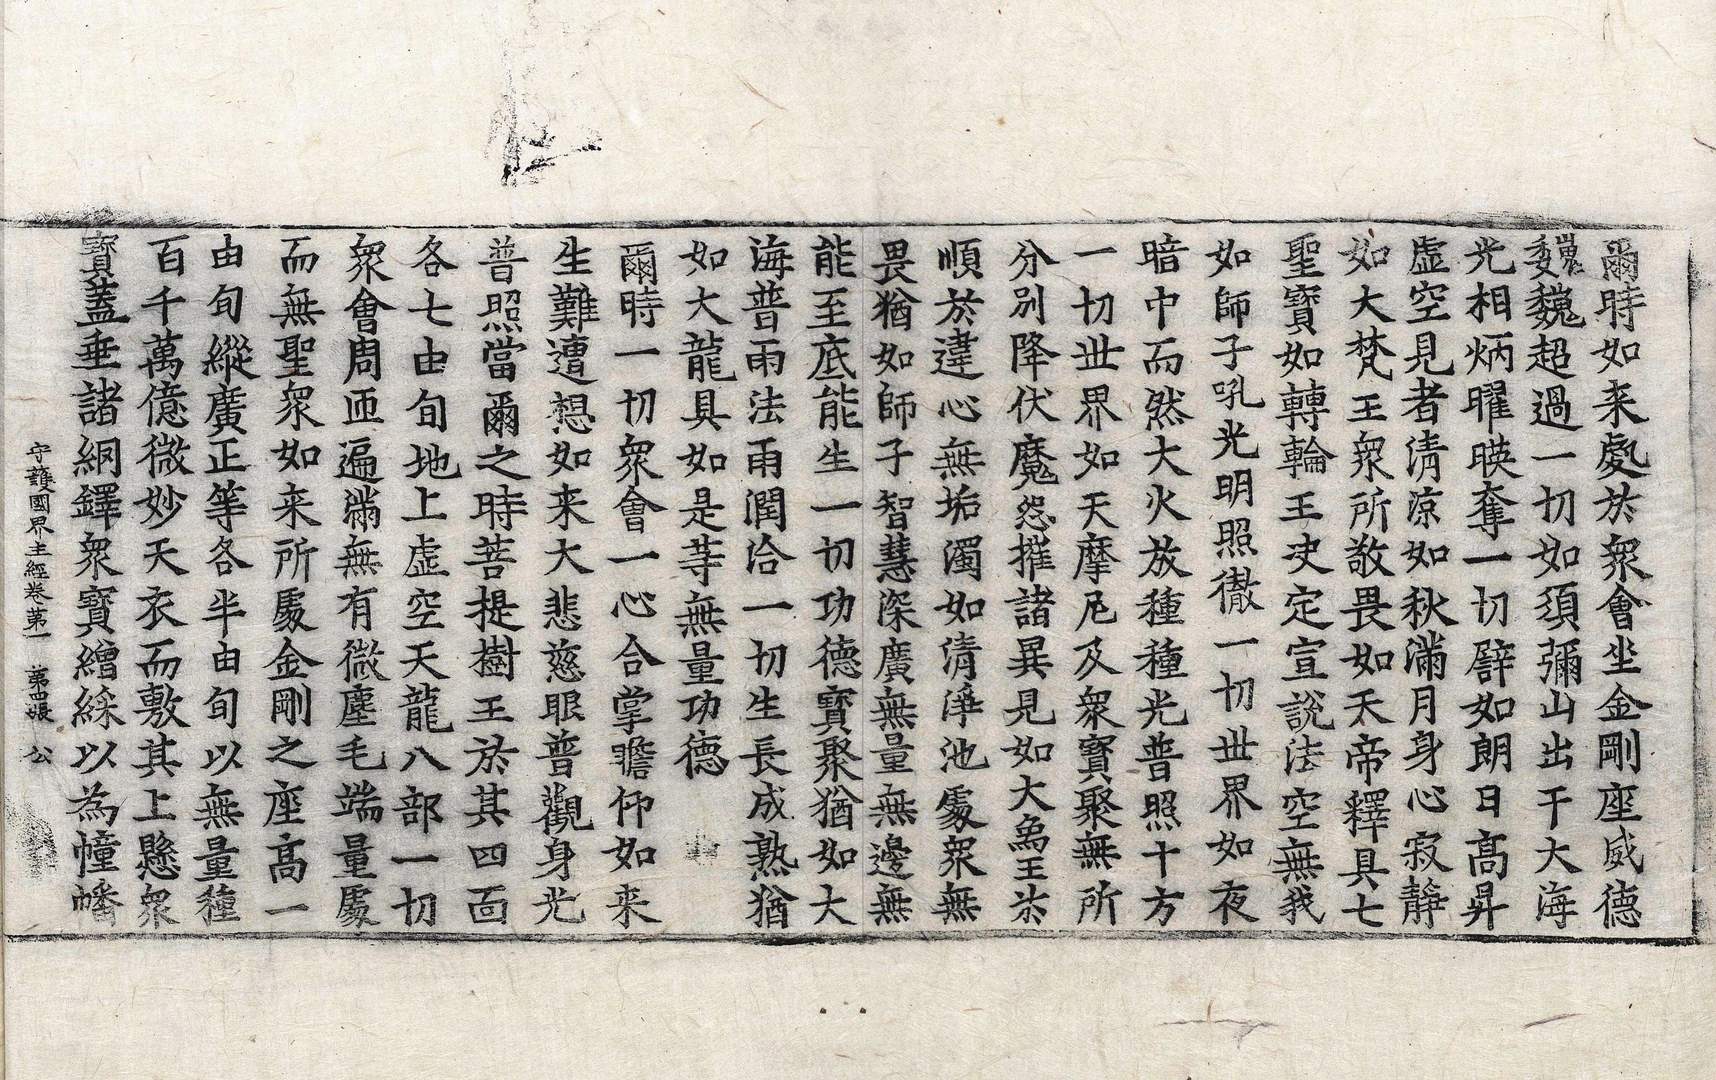 爾時如来處於衆會坐金剛座威德
巍巍超過一切如須彌山出于大海
光相炳曜暎奪一切譬如朗日髙昇
虛空見者清涼如秋滿月身心寂靜
如大梵王衆所敬畏如天帝釋具七
聖寶如轉輪王決定宣說法空無我
如師子吼光明照徹一切世界如夜
暗中而然大火放種種光普照十方
一切世界如天摩尼及衆寶聚無所
分別降伏魔怨摧諸異見如大烏王於
順於違心無垢濁如清淨池處衆無
畏猶如師子智慧深廣無量無邊無
能至底能生一切功德寶聚猶如大
海普雨法雨潤洽一切生長成熟猶
如大龍具如是等無量功德
爾時一切衆會一心合掌瞻仰如来
生難遭想如来大悲慈眼普觀身光
普照當爾之時菩提樹王於其四面
各七由旬地上虛空天龍八部一切
衆會周匝遍滿無有微塵毛端量處
而無聖衆如来所處金剛之座髙一
由旬縱廣正等各半由旬以無量種
百千萬億微妙天衣而敷其上懸衆
寶蓋垂諸網鐸衆寶繒綵以為幢幡
守護國界主經卷第一　第四張　公